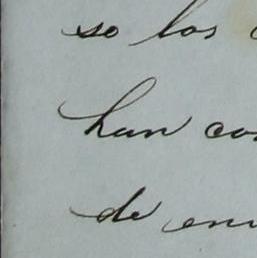 so los
han co
de en